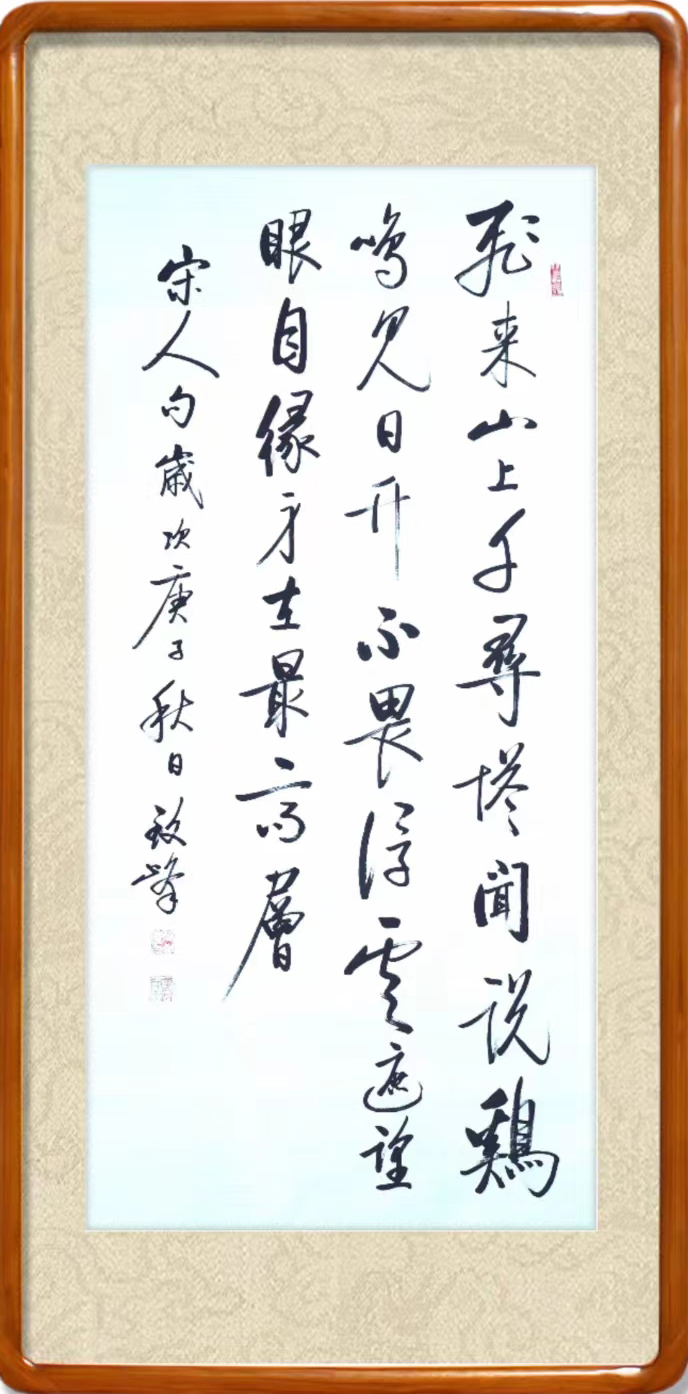 飛来山上千尋塔聞説鷄
鳴見日升不畏浮雲遮望
眼自緣身在最高層
宋人句歲次庚子秋日峰